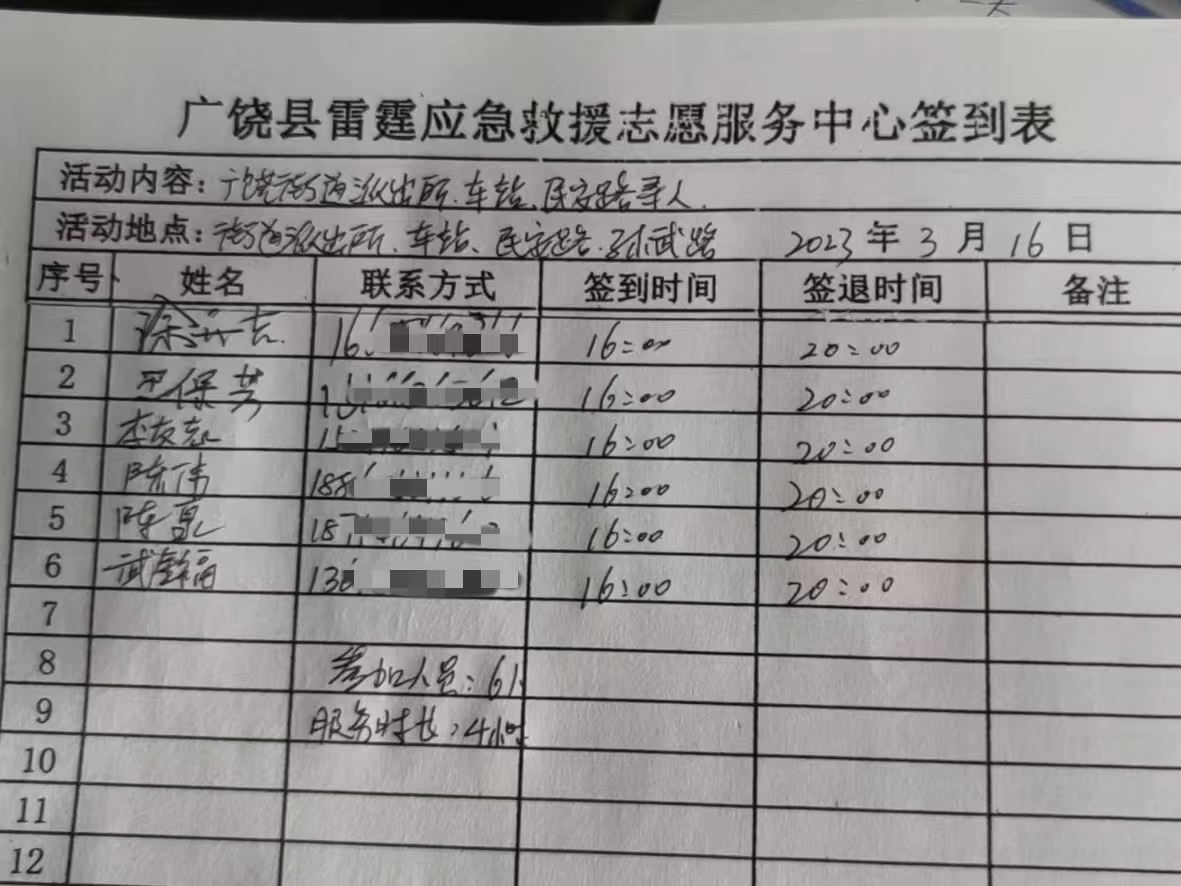 广饶县雷霆应急救援志愿服务中心签到表
活动内容：广饶街道派出所、车站、民安路寻人.
活动地点：街道派出所、车站、民安路、孙武路 2023年3月16日
序号 姓名 联系方式 签到时间 签退时间 备注
1 16 16:00 20:00
2 保芳 16:00 20:00
3 李友志 15 16:00 20:00
4 陈伟 188 16:00 20:00
5 陈亮 187 16:00 20:00
6 武 福 136 16:00 20:00
7
8 参加人员：6人
9 服务时长：4小时
10
11
12